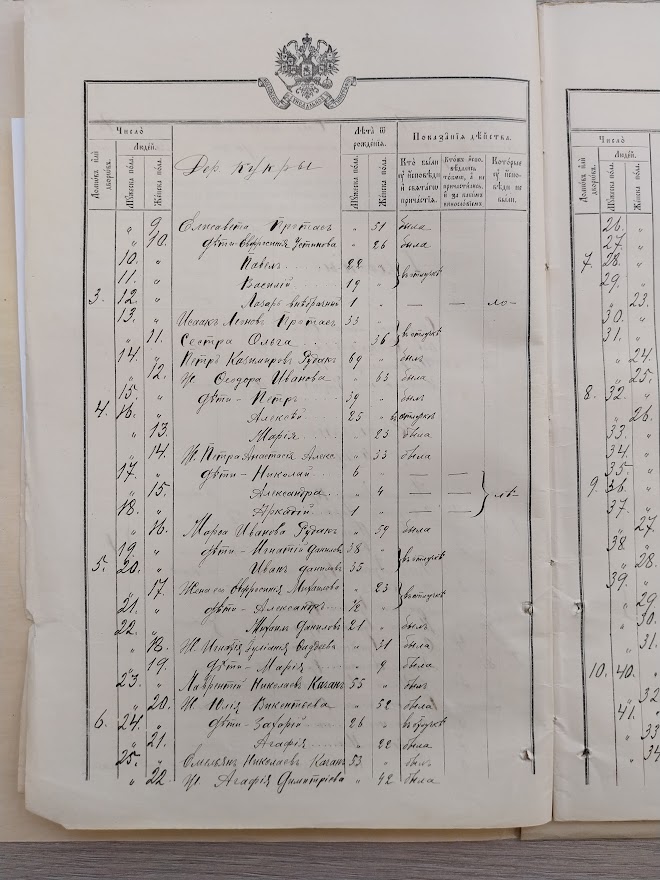 Число
Людей.
Лѣта ѿ рожденїя.
Показанїя дѣйства.
Домовъ или дворовъ.
Мꙋжеска пола.
Женска пола.
Дер. Кукры
Мꙋжеска пола.
Женска пола.
Кто были
и сватагѡ
причастїѧ.
Которые
не были.
" 9. Елисавета Протас " 51 была
" 10. дѣти - Евфросинія Устинова " 26 была
10. " Павелъ 22 "
11. " Василій 19 " въ отлучкѣ
3. 12. " Лазарь 1 " — — ло-
13. " Исаакъ Протас 33 "
" 11. Сестра Ольга " 36 въ отлучкѣ
14. " Петръ Казимировъ Рудакъ 69 " былъ
" 12. Ж. Ѳеодора Иванова " 63 была
15. " дѣти - Петръ 39 " былъ
4. 16. " Алексѣй 25 " въ отлучкѣ
" 13. Марія " 23 была
" 14. Ж. Петра Анастасія Алекс. " 33 была
17. " дѣти - Николай 6 " — —
" 15. Александра " 4 — —
18. " Аркадій 1 " — —
" 16. Марѳа Иванова Рудакъ " 59 была
19. " дѣти - Игнатій Даниловъ 38 "
5. 20. " Иванъ Даниловъ 35 " въ отлучкѣ
" 17. Жена его Евфросинія Михайлова " 23
21. " дѣти - Александръ ½ " въ отлучкѣ
22. " Михаилъ Даниловъ 21 " былъ
" 18. Ж. Игнатія Іуліанія " 31 была
" 19. дѣти - Марія " 9 была
23. " Лаврентій Николаевъ Каганъ 55 " былъ
" 20. Ж. Юлія Викентьева " 52 была
6. 24. " дѣти - Захарій 26 " въ отлучкѣ
" 21. Агафія " 22 была
25. " Емельянъ Николаевъ Каганъ 53 " былъ
" 22. Ж. Агафія Димитріева " 42 была
Число
Людей.
Домовъ или дворовъ.
Мꙋжеска пола.
Женска пола.
26. "
27. "
7. 28. "
29. "
" 23.
30. "
31. "
" 24.
" 25.
8. 32. "
" 26.
33. "
34. "
35. "
9. 36. "
37. "
" 27.
38. "
" 28.
39. "
" 29.
" 30.
" 31.
10. 40. "
" 32
41. "
" 33
" 34